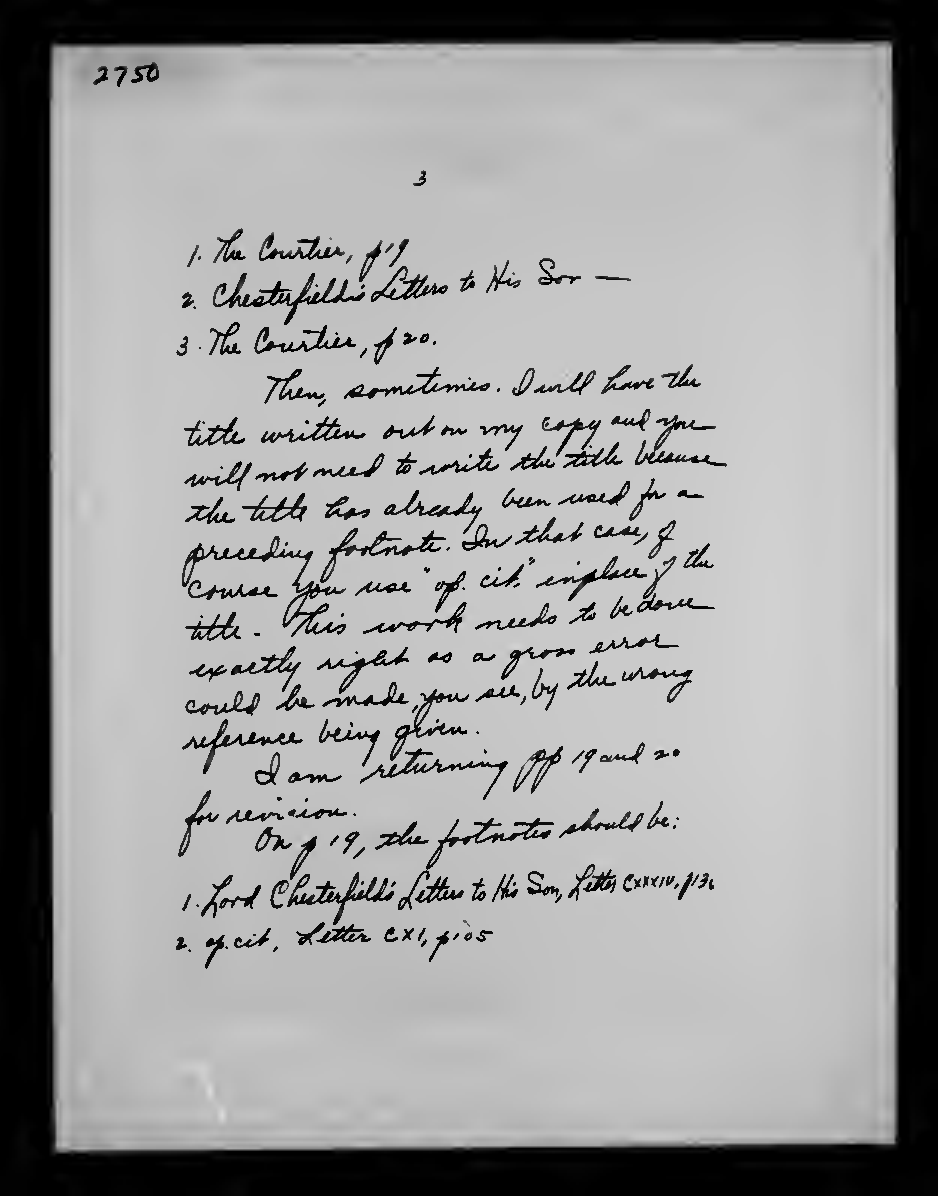 2750
3
1. The Courtier, p 19
2. Chesterfield's Letters to His Son —
3. The Courtier, p 20.
Then, sometimes. I will have the
title written out on my copy and you
will not need to write the title because
the title has already been used for a
preceding footnote. In that case, of
course you use "op. cit." in place of the
title. This work needs to be done
exactly right as a gross error
could be made, you see, by the wrong
reference being given.
I am returning pp 19 and 20
for revision.
On p 19, the footnotes should be:
1. Lord Chesterfield's Letters to His Son, Letter CXXXIV,
2. op. cit, Letter CXI, p 105